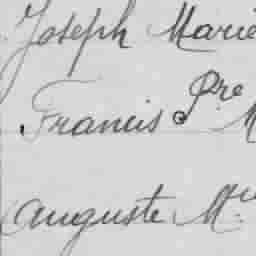 Joseph Marie
Francis Pre M
Auguste Mie